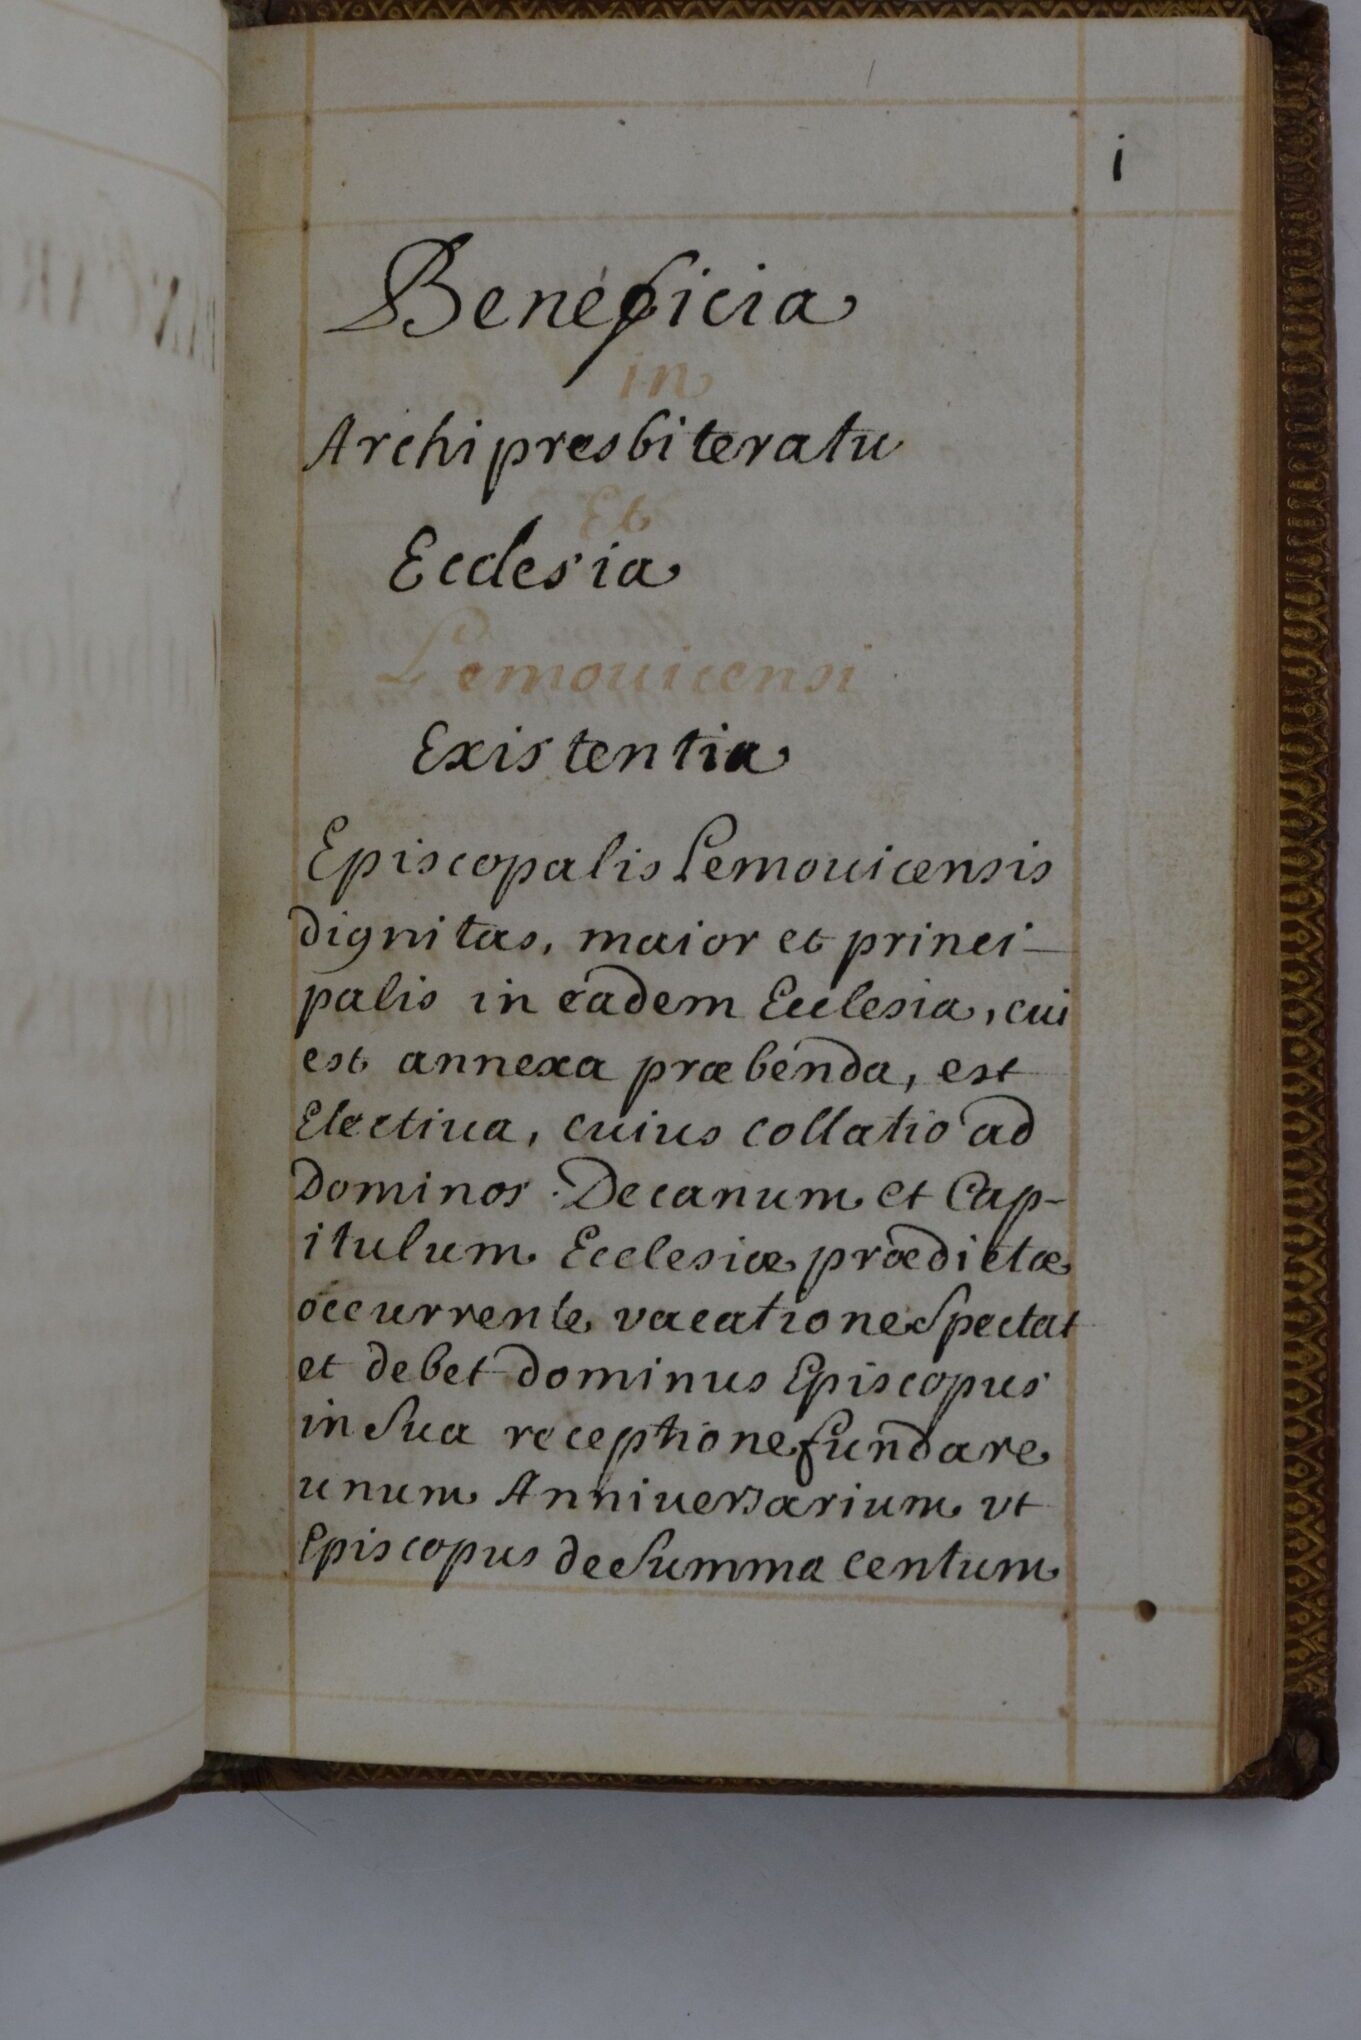 i
Beneficia
in
Archipresbiteratu
Et
Ecclesia
Lemouicensi
Existentia
Episcopalis Lemouicensis
dignitas, maior et princi-
palis in eadem Ecclesia, cui
est annexa præbenda, est
Electiua, cuius collatio ad
Dominos Decanum et Cap-
itulum Ecclesiæ prædictæ
occurrente vacatione Spectat
et debet dominus Episcopus
in Sua receptione fundare
unum Anniuersarium vt
Episcopus de Summa centum